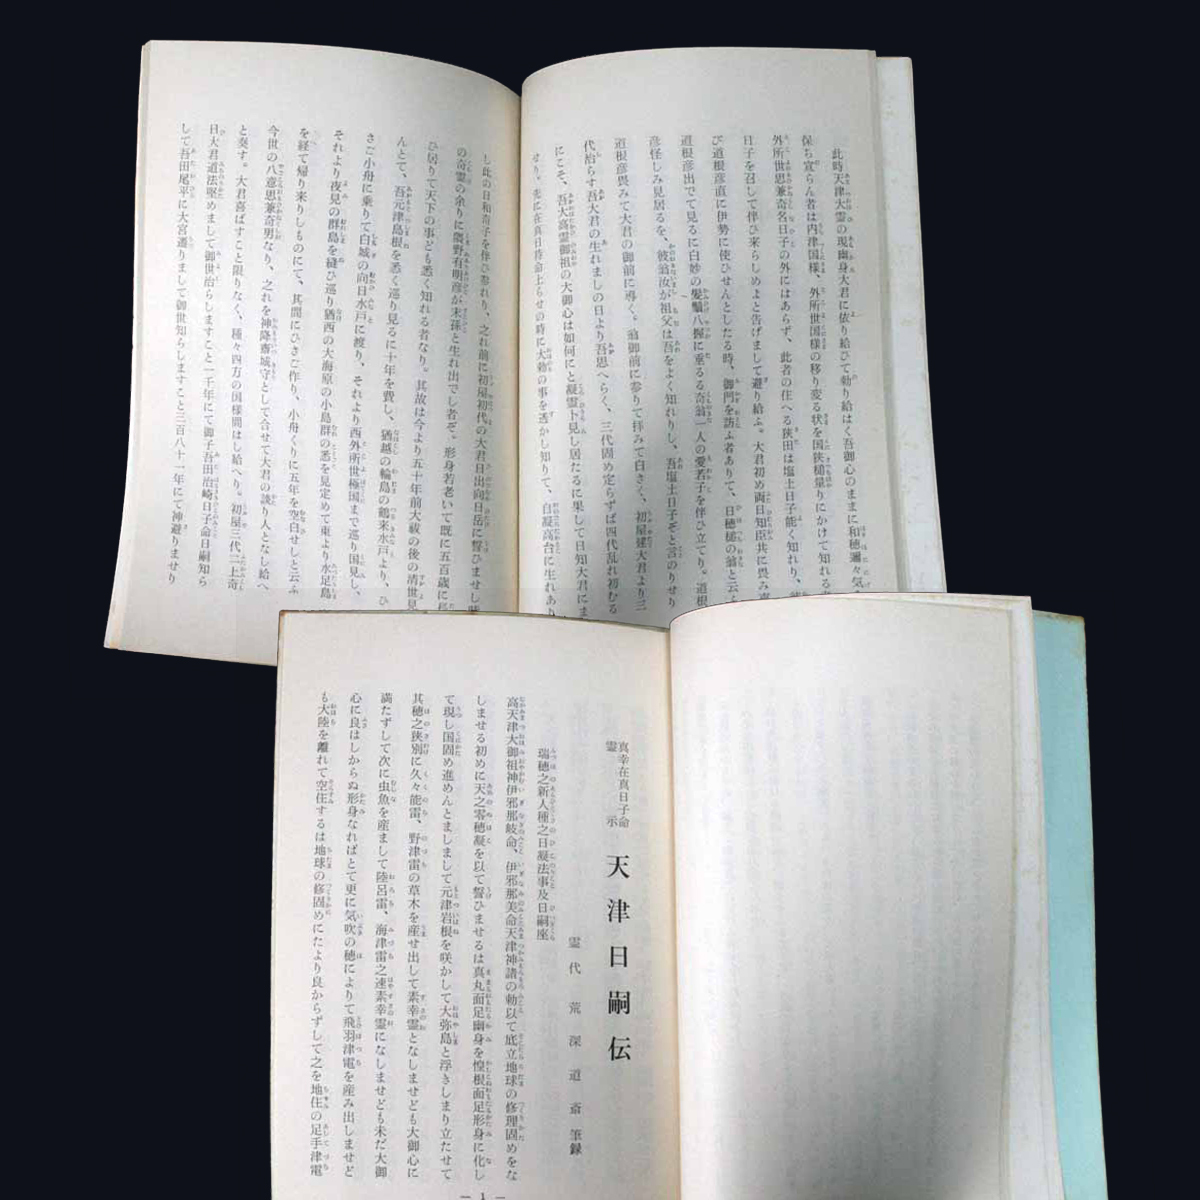 此時天津大霊の現幽身大君に依り給ひて勅り給はく吾御心のままに和穂邇々気
保ち宣らん者は内津国様、外所世国様の移り変る状を国狭槌量りにかけて知れる者
外所世思兼奇名日子の外にはあらず、此者の住へる狭田は塩土日子能く知れり、
日子を召して伴ひ来らしめよと告げまして避り給ふ。大君初め両日知臣共に畏み
び道根彦直に伊勢に使ひせんとしたる時、御門を訪ふ者ありて、日穂槌の翁と云
道根彦出でて見るに白妙の髪鬚八握に垂るる奇翁一人の愛若子を伴ひ立てり。道根
彦怪しみ見居るを、彼翁汝が祖父は吾をよく知れりし、吾塩土日子ぞと言のりせり
道根彦畏みて大君の御前に導く。翁御前に参りて拝みて白さく、初屋建大君より三
代治らす吾大君の生れましの日より吾思へらく、三代固め定らずば四代乱れ初むる
にこそ、吾大高霊御祖の大御心は如何にと凝霊卜見し居たるに果して日知大君にま
せり。先に在真日持命上らせの時に大勅の事を透かし知りて、白凝高台に生れあり
し此の日和奇子を伴ひ参れり、之れ前に初屋初代の大君日出向日岳に誓ひませし
の奇霊の余りに隈野有明彦が末孫と生れ出でし者ぞ。形身若老いて既に五百歳に
ひ居りて天下の事ども悉く知れる者なり。其故は今より五十年前大祓の後の清世見
んとて、吾元津島根を悉く巡り見るに十年を費し、猶越の輪島の鶴来水戸より、ひ
さご小舟に乗りて白城の向日水戸に渡り、それより西外所世極国まで巡り国見し、
それより夜見の群島を縫ひ巡り猶西の大海原の小島群の悉を見定めて東より水足島
を経て帰り来りしものにて、其間にひさご作り、小舟くりに五年を空白せしと云ふ
今世の八意思兼奇男なり、之れを神隆斎城守として合せて大君の談り人となし給へ
と奏す。大君喜ばすこと限りなく、種々四方の国様問はし給へり。初屋三代二上奇
日大君道法堅めまして御世治らしますこと一千年にて御子吾田治崎日子命日嗣知ら
して吾田尾平に大宮遷りまして御世知らしますこと三百八十一年にて神避りませり
真幸在真日子命
霊示
天津日嗣伝
霊代 荒深道斎 筆録
瑞穂之新人種之日凝法事及日嗣座
高天津大御祖神伊邪那岐命、伊邪那美命天津神諸の勅以て底立地球の修理固めをな
しませる初めに天之零穂凝を以て誓ひませるは真丸面足幽身を惶根面足形身に化し
て現し国固め進めんとましまして元津岩根を咲かして大弥島と浮きしまり立たせて
其穂之狭別に久々能雷、野津雷の草木を産せ出して素幸霊となしませども大御心に
満たずして次に虫魚を産まして陸呂雷、海津雷之速素幸霊になしませども未だ大御
心に良はしからぬ形身なればとて更に気吹の穂によりて飛羽津電を産み出しませど
も大陸を離れて空住するは地球の修固めにたより良からずして之を地住の足手津電
— 1 —